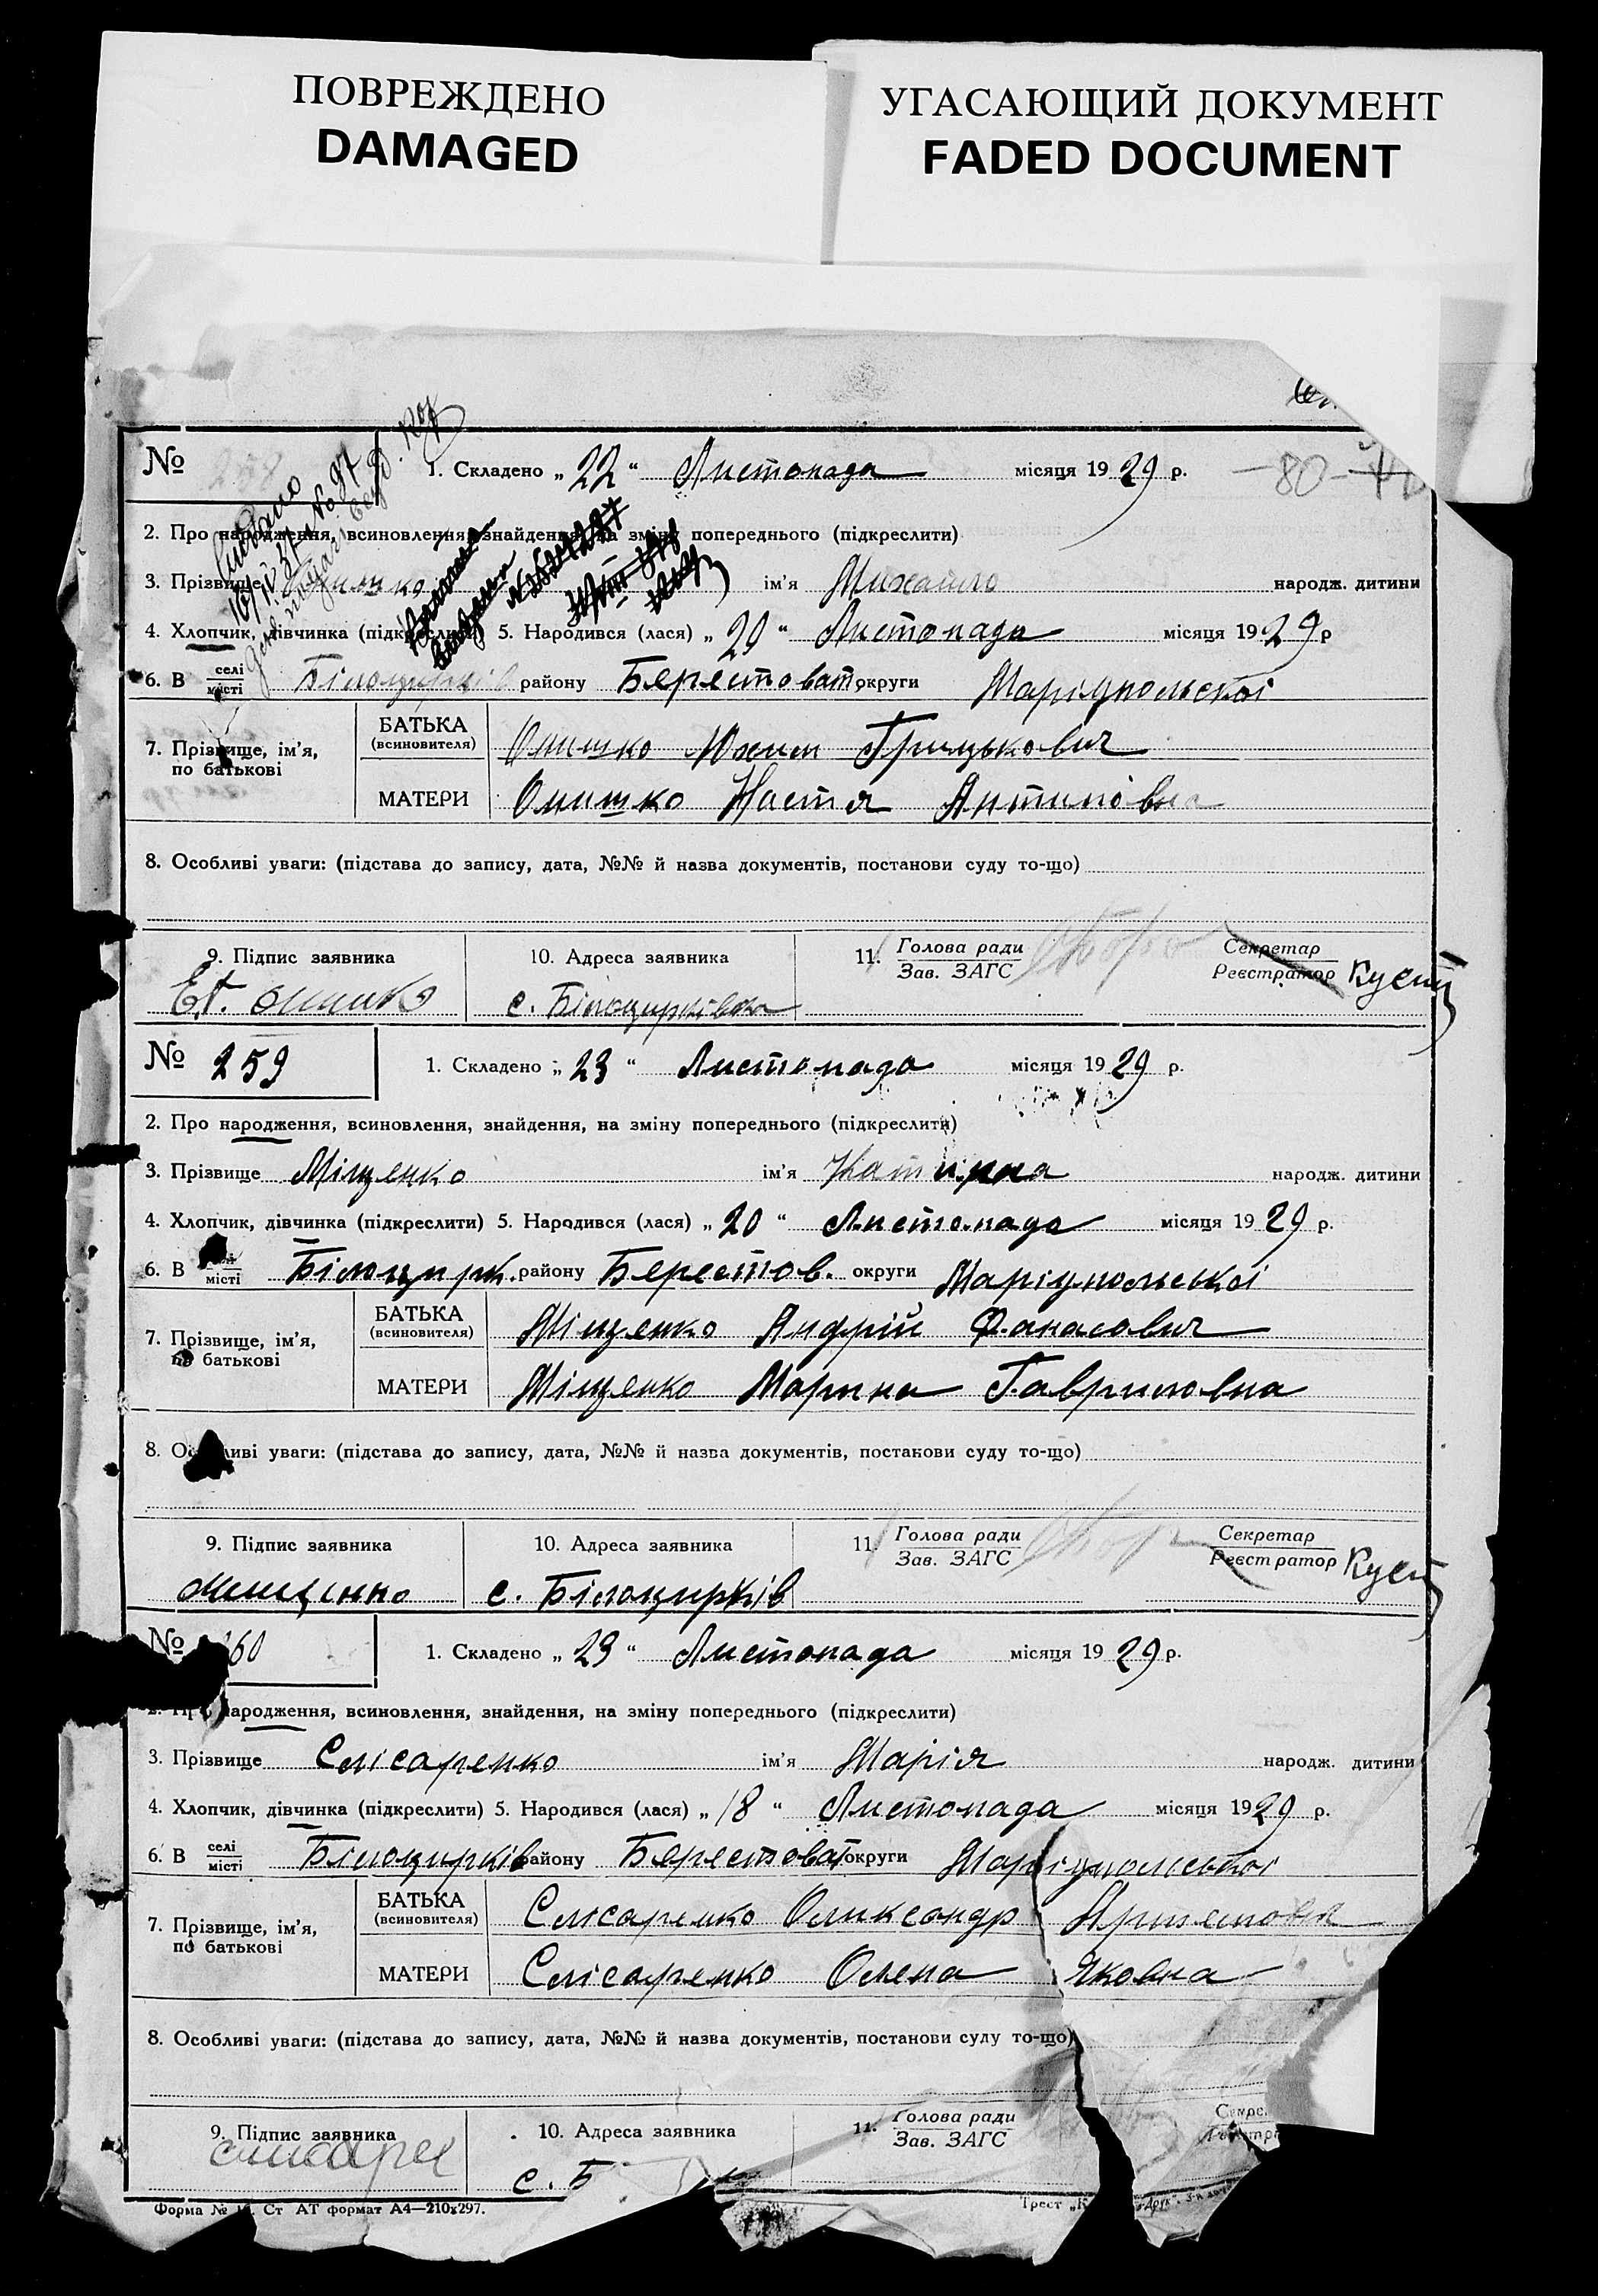 ПОВРЕЖДЕНО
DAMAGED
УГАСАЮЩИЙ ДОКУМЕНТ
FADED DOCUMENT
№ 258 1. Складено „ 22 “ Листопада місяця 19 29 р. — 80 —
2. Про народження, всиновлення, знайдення, на зміну попереднього (підкреслити)
3. Прізвище ім'я Михайло народж. дитини
4. Хлопчик, дівчинка (підкреслити) 5. Народився (лася) „ 20 “ Листопада місяця 19 29 р
6. В селі місті Білоцирків району Берестоват. округи Маріупольскоі
7. Прізвище, ім'я, по батькові
БАТЬКА (всиновителя) Онишко Юхим Грицькович
МАТЕРИ Онишко Настя Антиповна
8. Особливі уваги: (підстава до запису, дата, №№ й назва документів, постанови суду то-що)
9. Підпис заявника 10. Адреса заявника 11. Голова ради Зав. ЗАГС Секретар Реєстратор
Онишко с. Білоцирківка
№ 259 1. Складено „ 23 “ Листопада місяця 19 29 р.
2. Про народження, всиновлення, знайдення, на зміну попереднього (підкреслити)
3. Прізвище Міщенко ім'я Катирна народж. дитини
4. Хлопчик, дівчинка (підкреслити) 5. Народився (лася) „ 20 “ Листопада місяця 19 29 р.
6. В місті Білоцирк. району Берестов. округи Маріупольськоі
7. Прізвище, ім'я, по батькові
БАТЬКА (всиновителя) Міщенко Андрій Фанасович
МАТЕРИ Міщенко Марина Гавриловна
8. Особливі уваги: (підстава до запису, дата, №№ й назва документів, постанови суду то-що)
9. Підпис заявника 10. Адреса заявника 11. Голова ради Зав. ЗАГС Секретар Реєстратор
Мищенко с. Білоцирків
№ 60 1. Складено „ 23 “ Листопада місяця 19 29 р.
2. Про народження, всиновлення, знайдення, на зміну попереднього (підкреслити)
3. Прізвище Слісаренко ім'я Марія народж. дитини
4. Хлопчик, дівчинка (підкреслити) 5. Народився (лася) „ 18 “ Листопада місяця 19 29 р.
6. В селі місті Білоцирків району Берестоват округи Маріупольськоі
7. Прізвище, ім'я, по батькові
БАТЬКА (всиновителя) Слісаренко Олександр
МАТЕРИ Слісаренко Олена Яковна
8. Особливі уваги: (підстава до запису, дата, №№ й назва документів, постанови суду то-що)
9. Підпис заявника 10. Адреса заявника 11. Голова ради Зав. ЗАГС
с. Б
Форма № Ст АТ формат А4—210х297. Трест